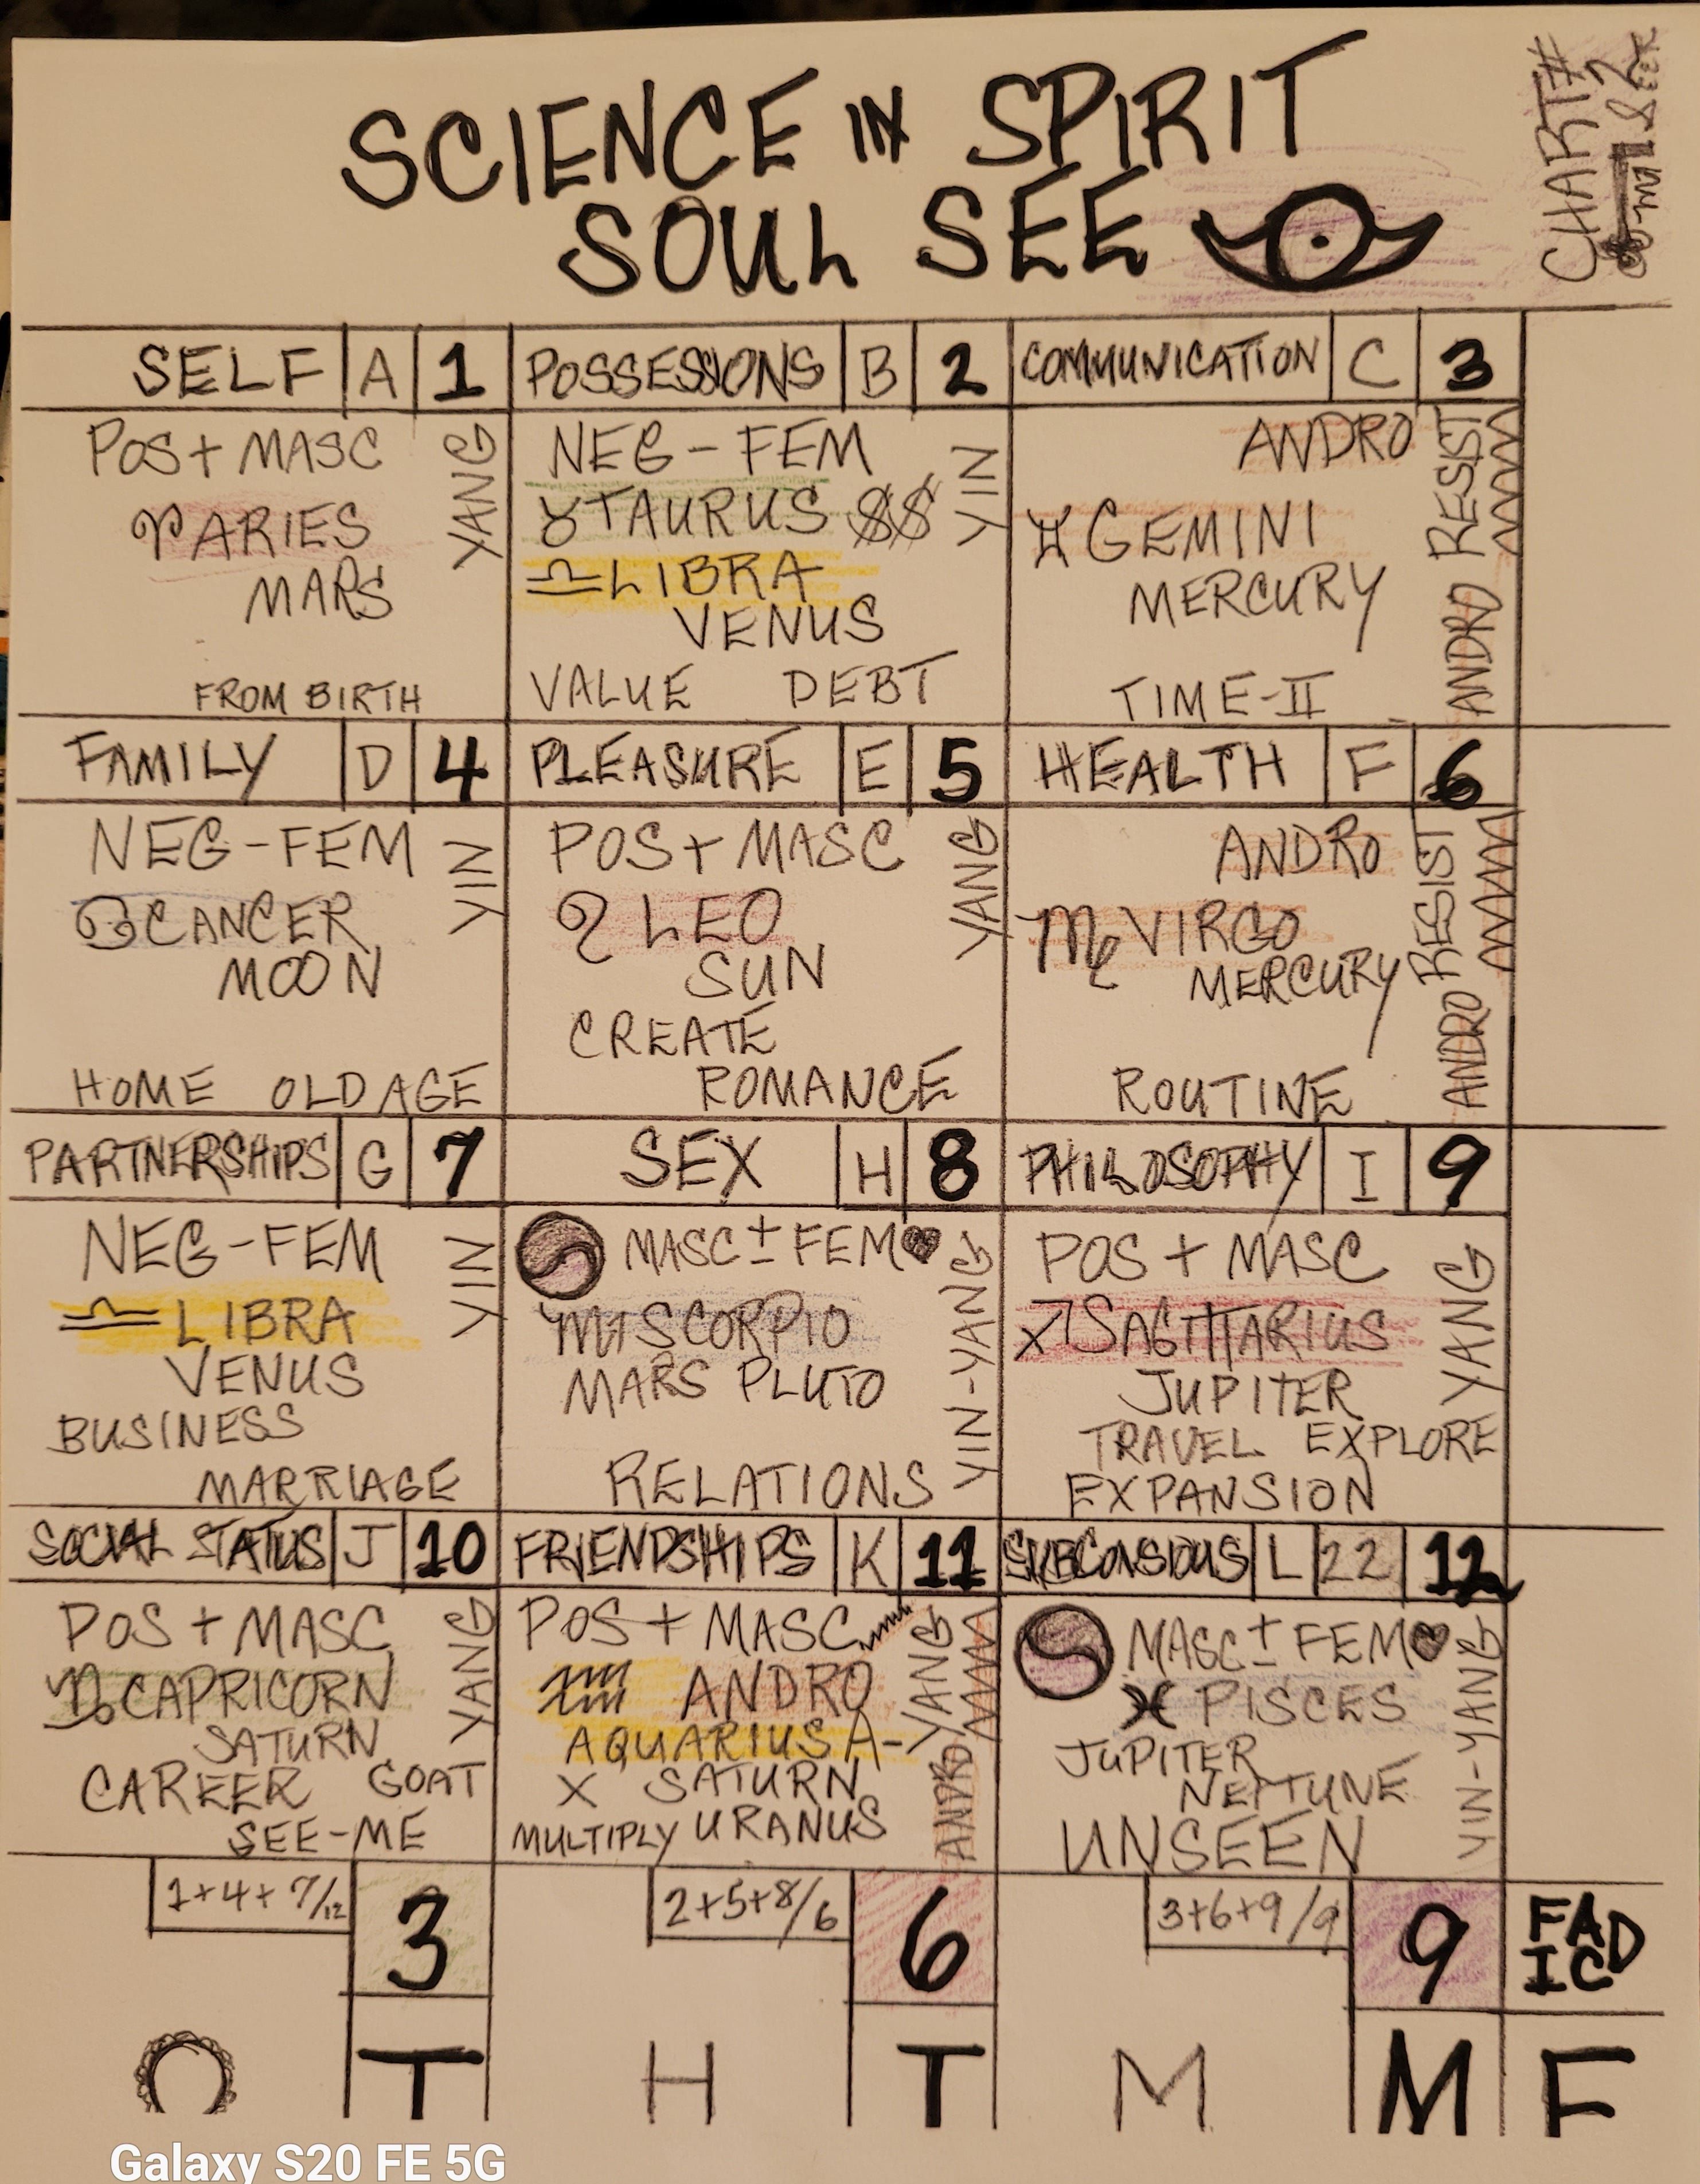 SCIENCE IN SPIRIT
SOUL SEE
CHART#
SELF A 1
POS + MASC
YANG
♈ ARIES
MARS
FROM BIRTH
POSSESSIONS B 2
NEG - FEM
YIN
♉ TAURUS $$
♎ LIBRA
VENUS
VALUE DEBT
COMMUNICATION C 3
ANDRO
ANDRO RESIST
♊ GEMINI
MERCURY
TIME-II
FAMILY D 4
NEG - FEM
YIN
♋ CANCER
MOON
HOME OLD AGE
PLEASURE E 5
POS + MASC
YANG
♌ LEO
SUN
CREATE
ROMANCE
HEALTH F 6
ANDRO
ANDRO RESIST
♍ VIRGO
MERCURY
ROUTINE
PARTNERSHIPS G 7
NEG - FEM
YIN
♎ LIBRA
VENUS
BUSINESS
MARRIAGE
SEX H 8
MASC ± FEM ♥
YIN-YANG
♏ SCORPIO
MARS PLUTO
RELATIONS
PHILOSOPHY I 9
POS + MASC
YANG
♐ SAGITTARIUS
JUPITER
TRAVEL EXPLORE
EXPANSION
SOCIAL STATUS J 10
POS + MASC
YANG
♑ CAPRICORN
SATURN
CAREER GOAT
SEE-ME
FRIENDSHIPS K 11
POS + MASC
ANDRO YANG
♒ ANDRO
AQUARIUS A-
X SATURN
MULTIPLY URANUS
SUBCONSIOUS L 22 12
MASC ± FEM ♥
YIN-YANG
♓ PISCES
JUPITER
NEPTUNE
UNSEEN
1+4+7/12 3
2+5+8/6 6
3+6+9/9 9
FADIC
T H T M M F
Galaxy S20 FE 5G